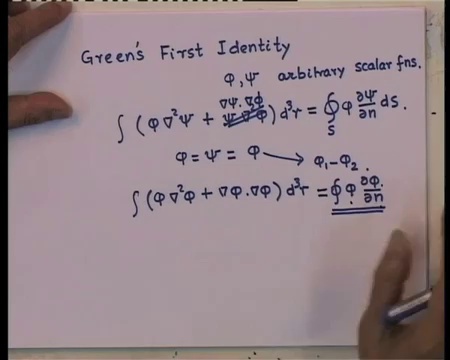 Green's First Identity
φ, ψ arbitrary scalar fns.
∇ψ·∇φ
∫ (φ∇²ψ + ψ∇²φ) d³r = ∮_S φ ∂ψ/∂n dS.
φ = ψ = φ → φ₁-φ₂.
∫ (φ∇²φ + ∇φ·∇φ) d³r = ∮ φ ∂φ/∂n